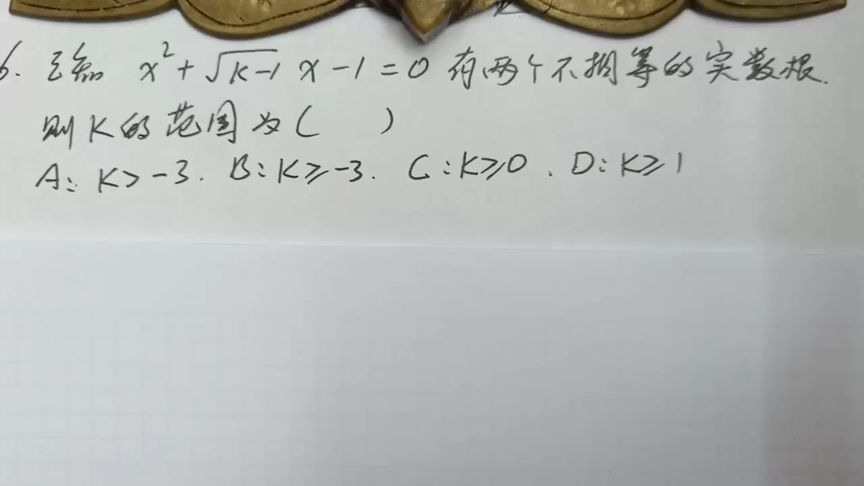 6. 已知 x²+√(k-1) x-1=0 有两个不相等的实数根.
则K的范围为(  )
A: K>-3. B: K≥-3. C: K≥0. D: K≥1